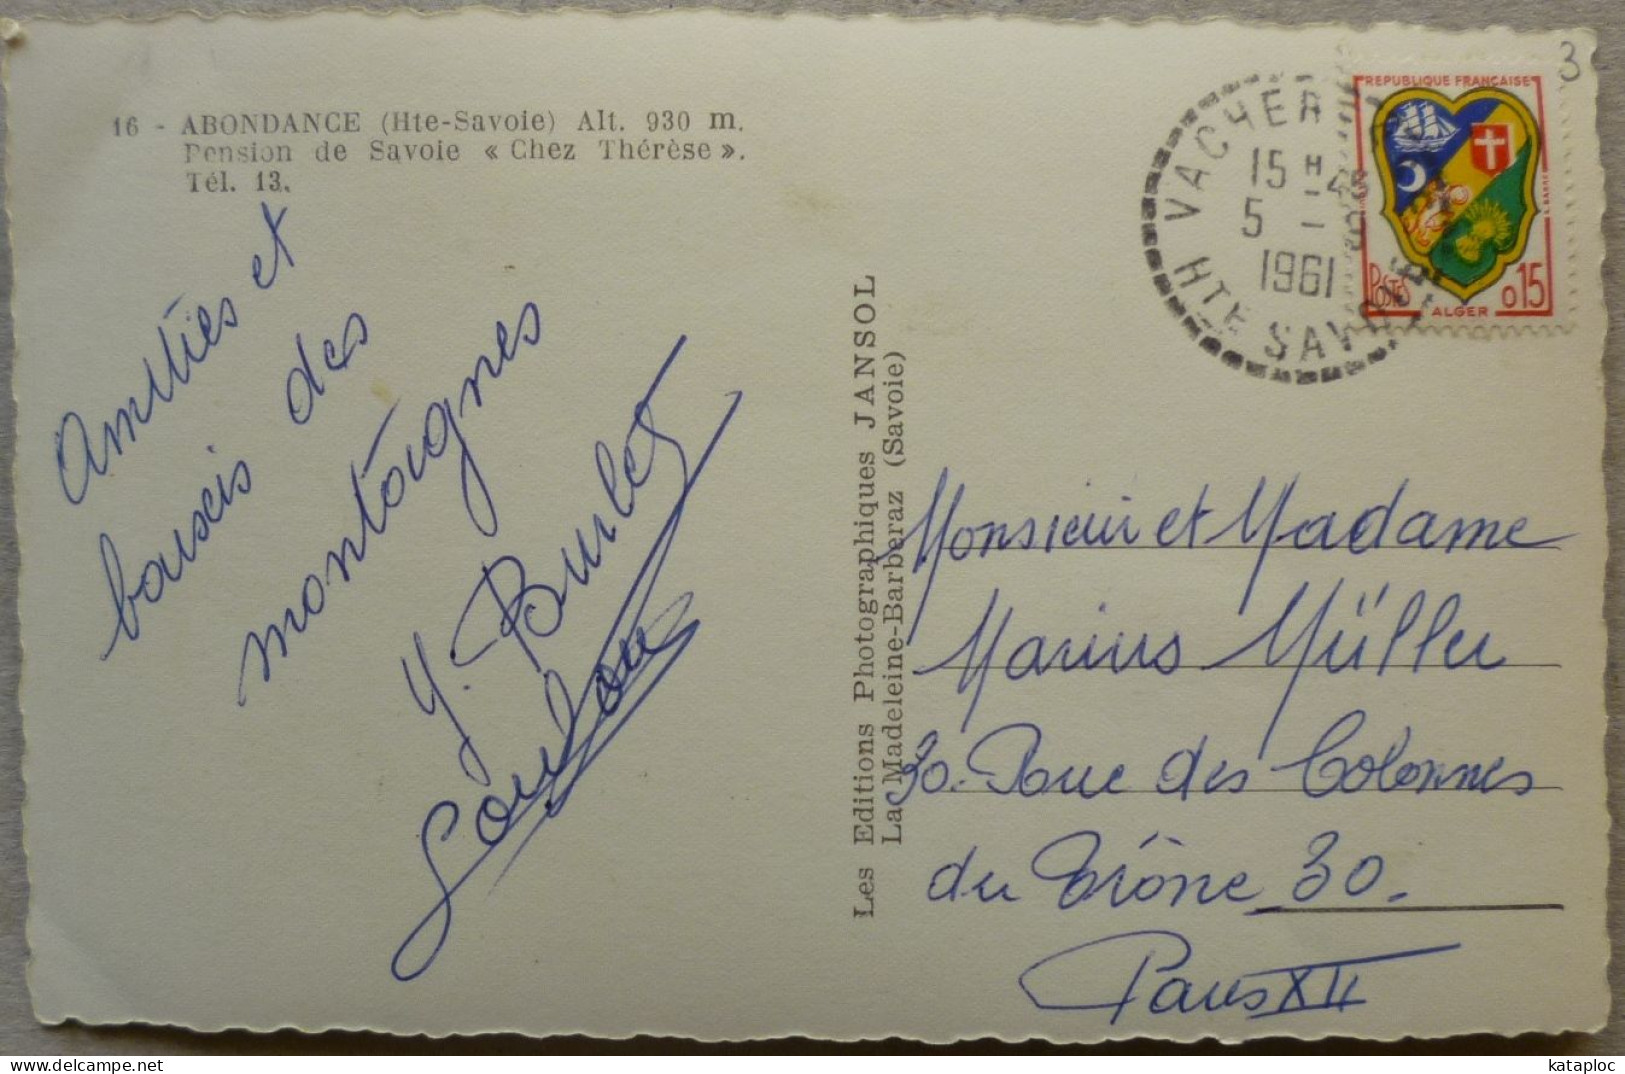 16 - ABONDANCE (Hte-Savoie) Alt. 930 m.
Pension de Savoie « Chez Thérèse ».
Tél. 13.
Amitiés et
bauseis des
montagnes
Y. Burlet
Les Editions Photographiques JANSOL
La Madeleine-Barberaz (Savoie)
VACHER
15 H
5 - 1
1961
HTE SAVOIE
REPUBLIQUE FRANÇAISE
POSTES
0,15
ALGER
3
Monsieur et Madame
Marius Müller
30. Rue des Colonnes
du Trône 30.
Paris XII
kataploc